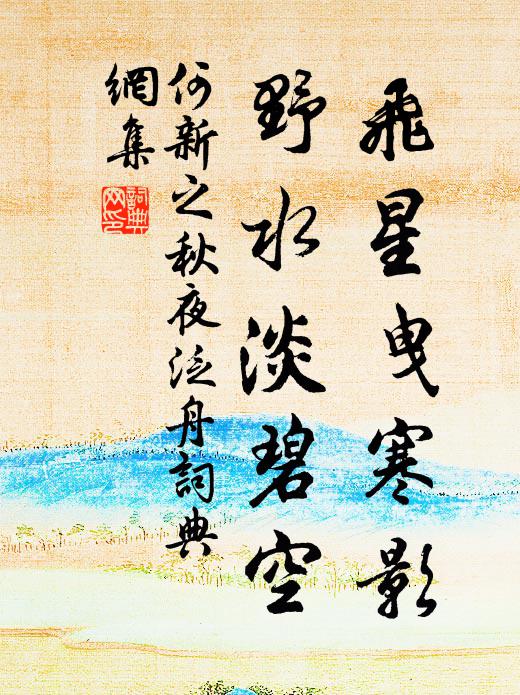 飛星曳寒影
野水淡碧空
何新之秋夜泛舟詞典
網集
詞典網印